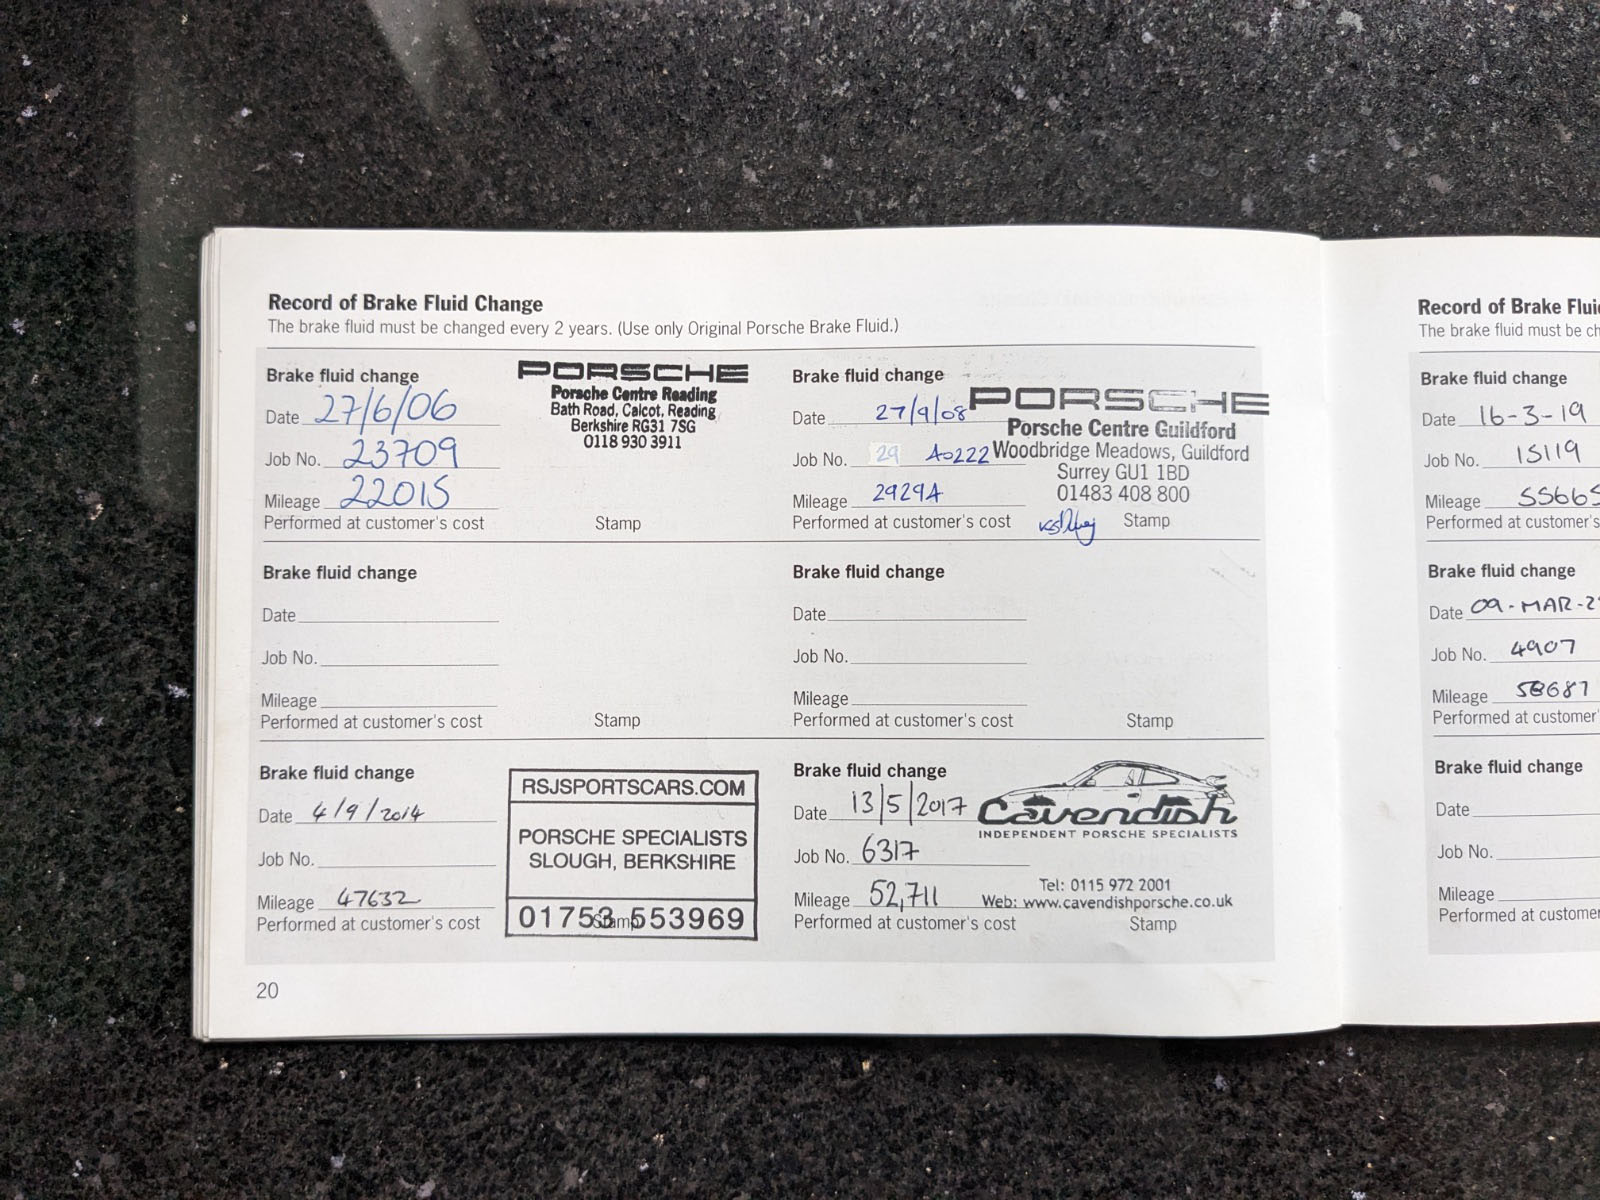 Record of Brake Fluid Change
The brake fluid must be changed every 2 years. (Use only Original Porsche Brake Fluid.)
Brake fluid change
Date 27/6/06
Job No. 23709
Mileage 22015
Performed at customer's cost
Stamp
PORSCHE
Porsche Centre Reading
Bath Road, Calcot, Reading
Berkshire RG31 7SG
0118 930 3911
Brake fluid change
Date 27/9/08
Job No. 29 A0222
Mileage 29294
Performed at customer's cost
Stamp
PORSCHE
Porsche Centre Guildford
Woodbridge Meadows, Guildford
Surrey GU1 1BD
01483 408 800
Brake fluid change
Date
Job No.
Mileage
Performed at customer's cost
Stamp
Brake fluid change
Date
Job No.
Mileage
Performed at customer's cost
Stamp
Brake fluid change
Date 4/9/2014
Job No.
Mileage 47632
Performed at customer's cost
Stamp
RSJSPORTSCARS.COM
PORSCHE SPECIALISTS
SLOUGH, BERKSHIRE
01753 553969
Brake fluid change
Date 13/5/2017
Job No. 6317
Mileage 52,711
Performed at customer's cost
Stamp
Cavendish
INDEPENDENT PORSCHE SPECIALISTS
Tel: 0115 972 2001
Web: www.cavendishporsche.co.uk
20
Record of Brake Flui
The brake fluid must be ch
Brake fluid change
Date 16-3-19
Job No. 15119
Mileage 55665
Performed at customer's
Brake fluid change
Date 09-MAR-2
Job No. 4907
Mileage 58687
Performed at customer'
Brake fluid change
Date
Job No.
Mileage
Performed at custome